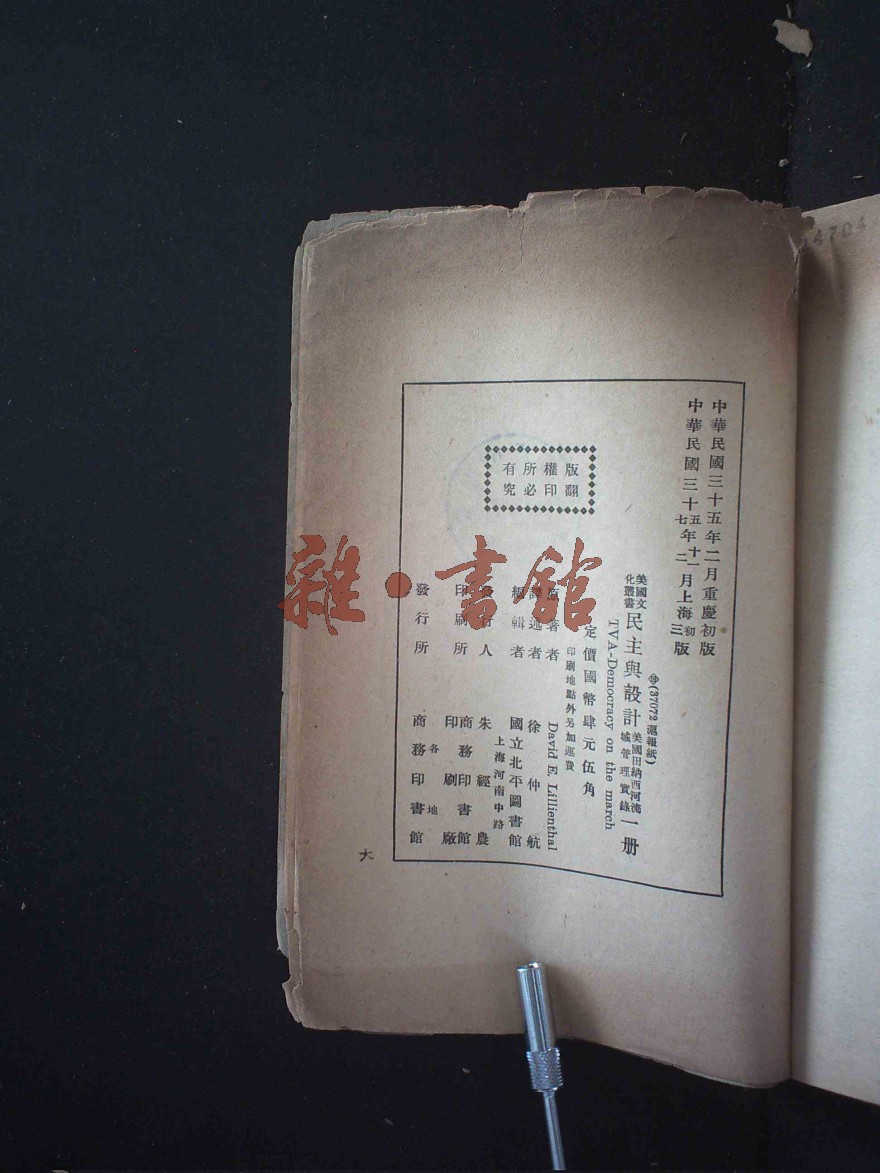 中華民國三十五年二月重慶初版
中華民國三十五七年十一二月上海初三版
㊞(37072 滬報紙)
美國文化叢書 民主與設計 美國田納西河流域管理實錄 一册
TVA-Democracy on the march
定價國幣肆元伍角
印刷地點外另加運費
原著者 David E. Lillienthal
譯述者 徐仲航
編輯者 國立北平圖書館
發行人 朱經農
上海河南中路
印刷所 商務印書館印刷廠
發行所 各地 商務印書館
版權所有
翻印必究
4704
雜·書館